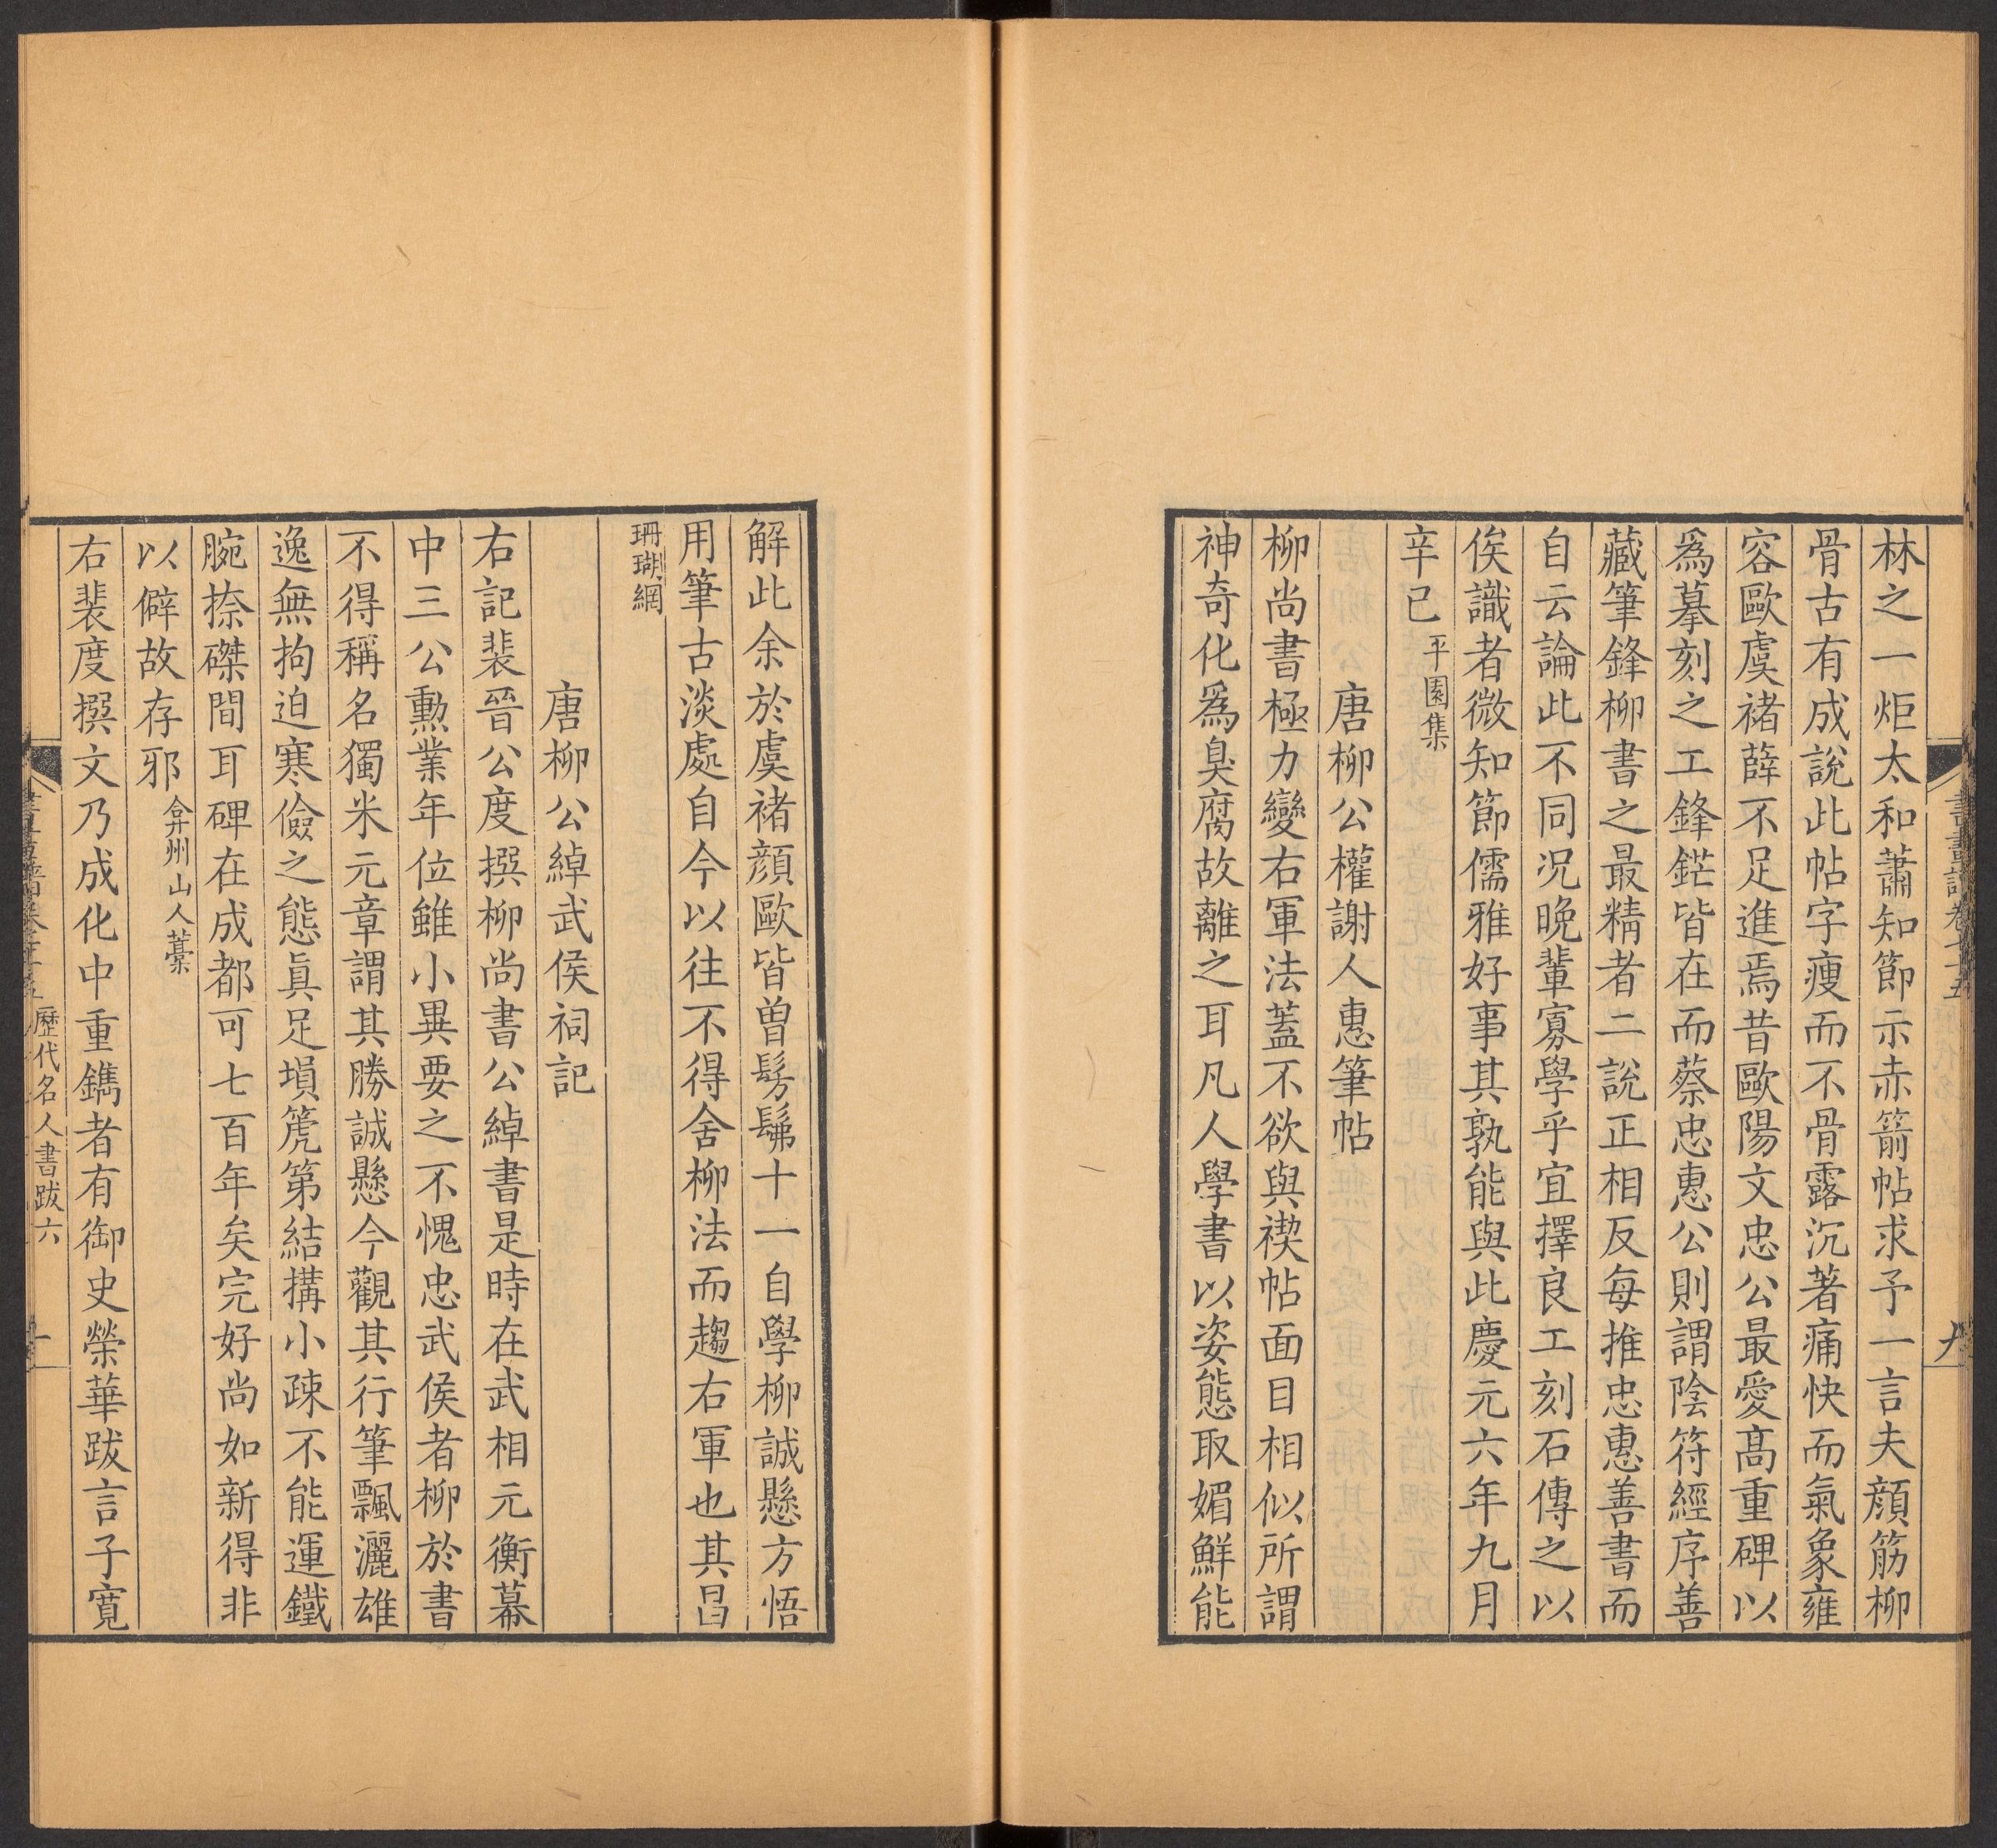 林之一炬太和蕭知節示赤箭帖求予一言夫顔筋柳
骨古有成說此帖字瘦而不骨露沉著痛快而氣象雍
容歐虞褚薛不足進焉昔歐陽文忠公最愛髙重碑以
爲摹刻之工鋒鋩皆在而蔡忠惠公則謂陰符經序善
藏筆鋒柳書之最精者二說正相反每推忠惠善書而
自云論此不同況晚輩寡學乎宜擇良工刻石傳之以
俟識者微知節儒雅好事其孰能與此慶元六年九月
辛已 平園集
唐柳公權謝人惠筆帖
柳尚書極力變右軍法蓋不欲與禊帖面目相似所謂
神奇化爲臭腐故離之耳凡人學書以姿態取媚鮮能
解此余於虞褚顔歐皆曾髣髴十一自學柳誠懸方悟
用筆古淡處自今以往不得舍柳法而趨右軍也其昌
珊瑚網
唐柳公綽武侯祠記
右記裴晉公度撰柳尚書公綽書是時在武相元衡幕
中三公勲業年位雖小異要之不愧忠武侯者柳於書
不得稱名獨米元章謂其勝誠懸今觀其行筆飄灑雄
逸無拘迫寒儉之態眞足塤箎第結搆小疎不能運鐵
腕捺磔間耳碑在成都可七百年矣完好尚如新得非
以僻故存邪 弇州山人藁
右裴度撰文乃成化中重鐫者有御史榮華跋言子寬
歷代名人書跋六